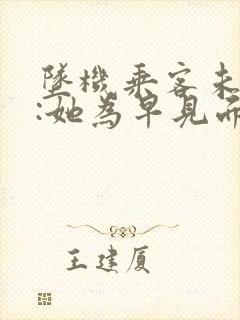 墜機乘客未
:她為早見而
王建厦